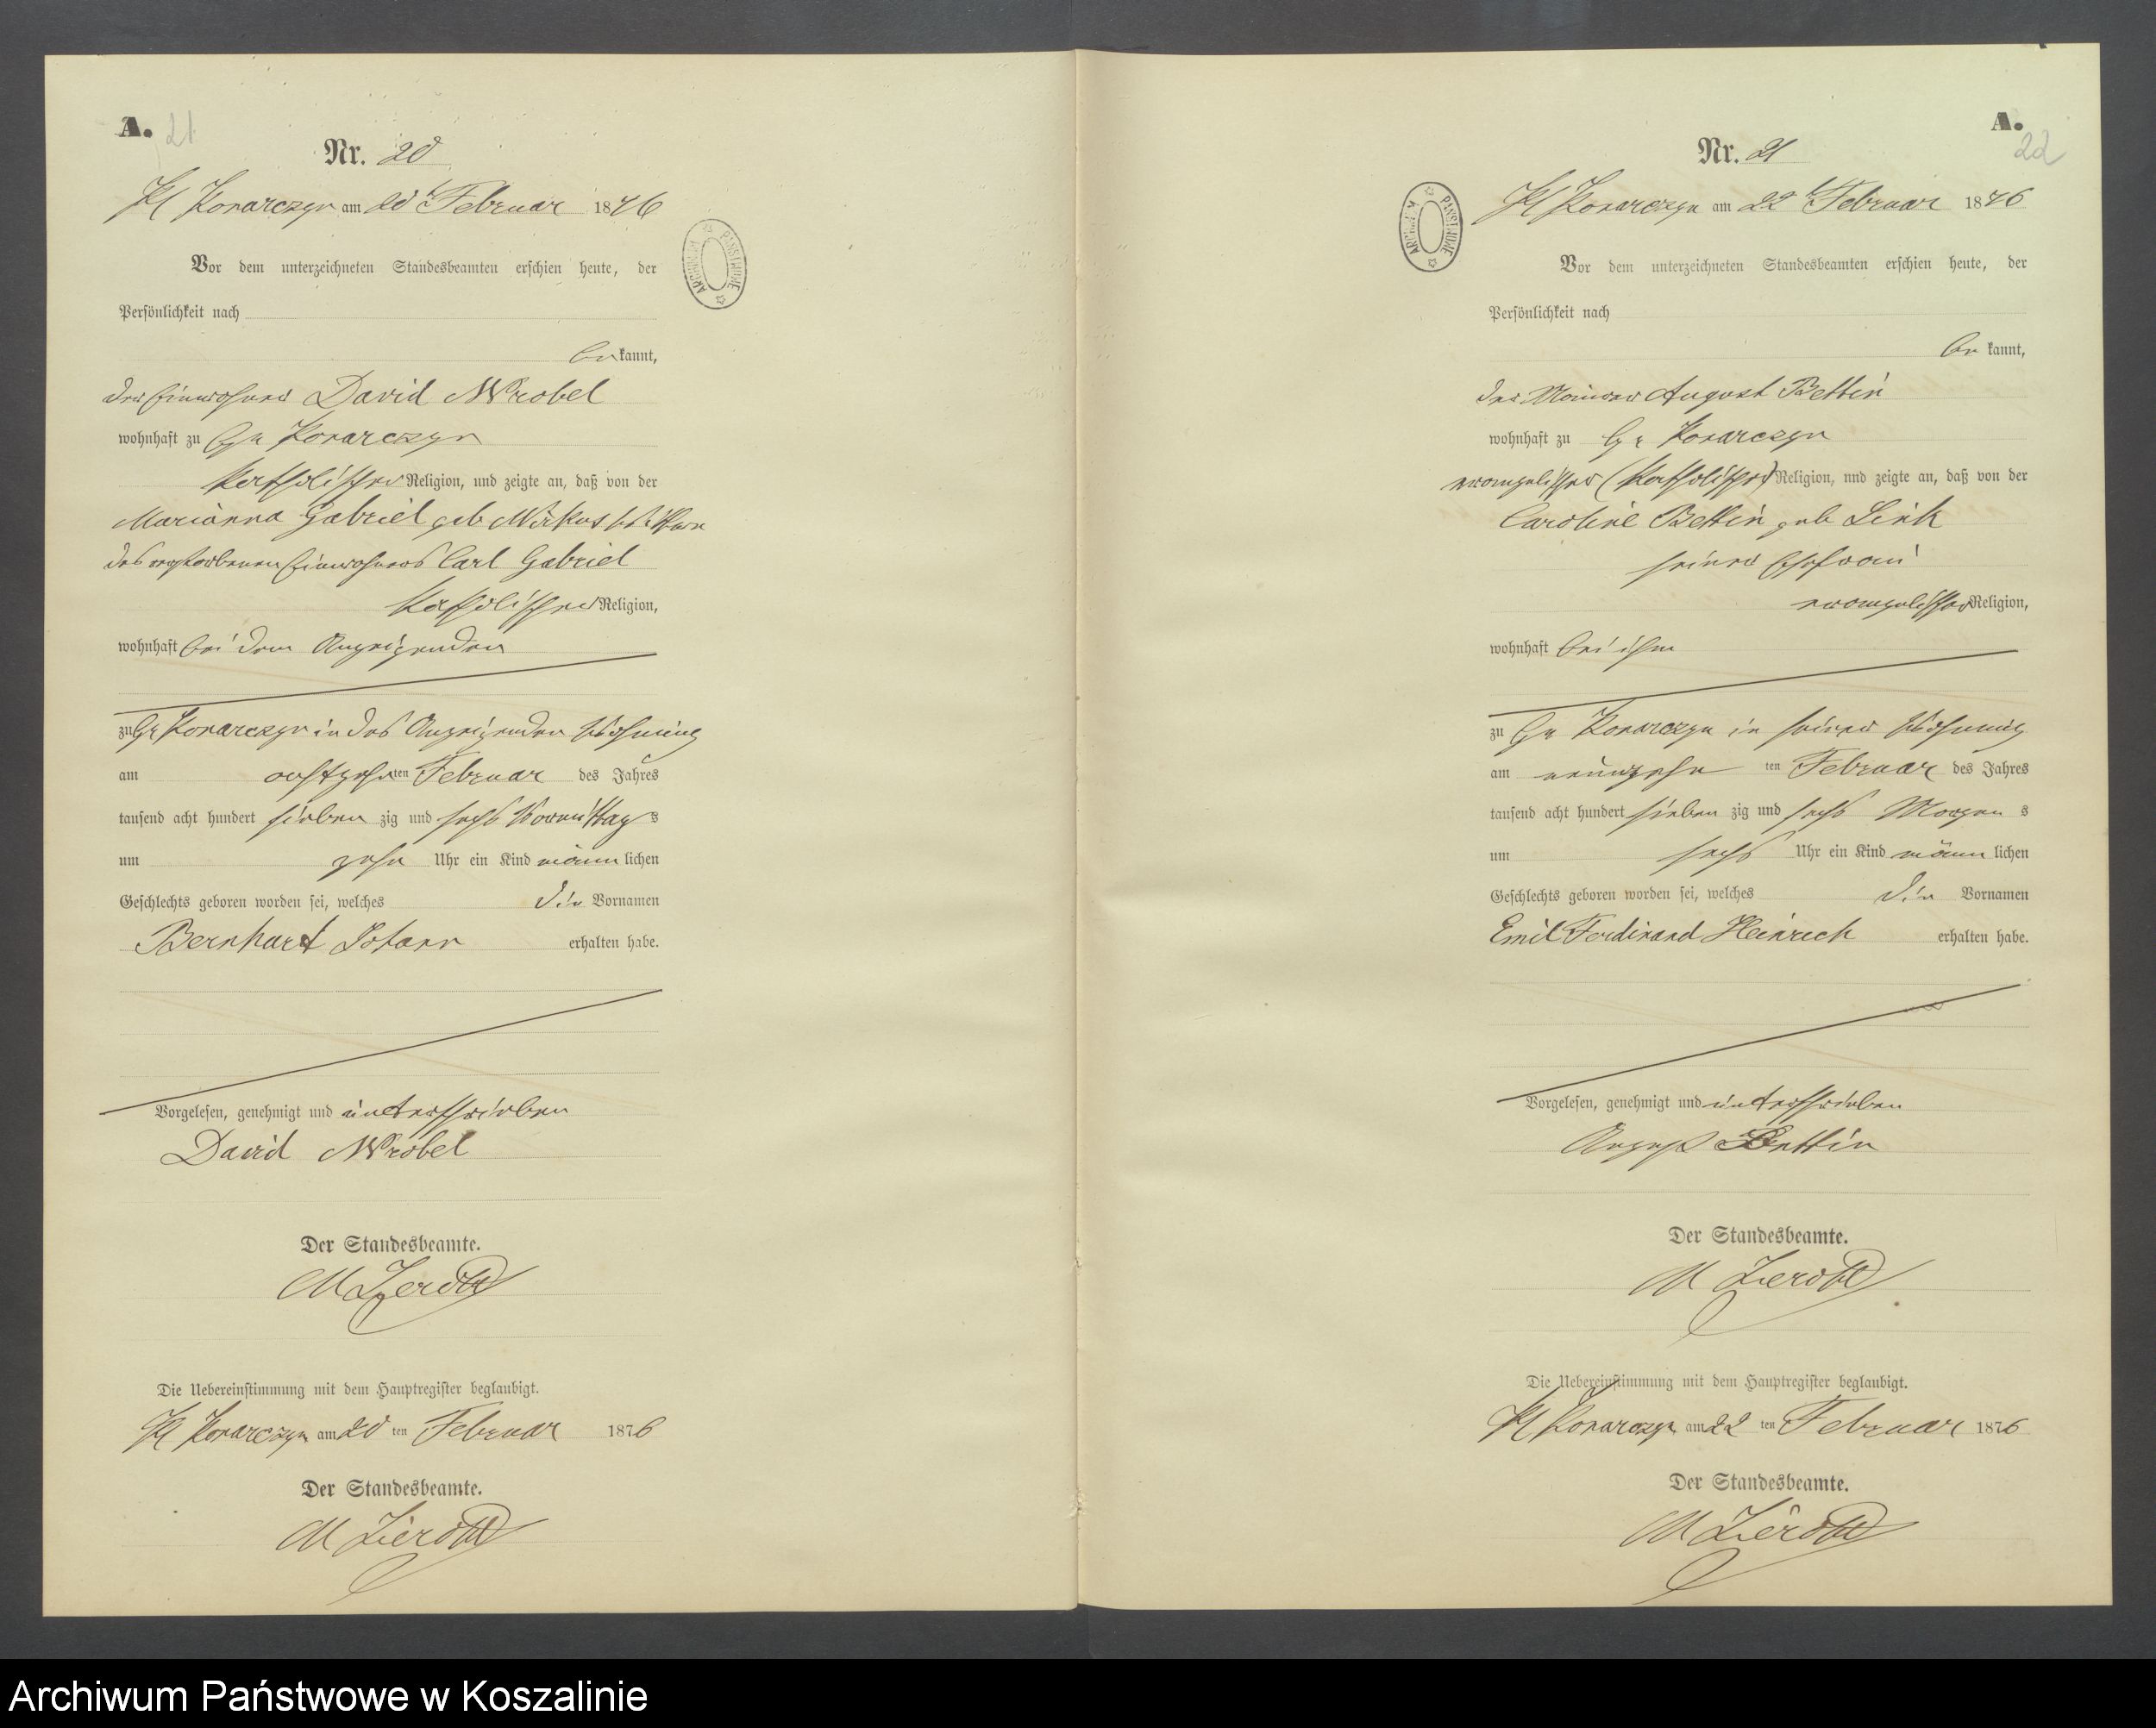 A. 21
Nr. 20
Kl Konarczyn am 20t Februar 1876
Vor dem unterzeichneten Standesbeamten erschien heute, der
Persönlichkeit nach
be kannt,
der Einwohner David Wrobel
wohnhaft zu Gr Konarczyn
katholischer Religion, und zeigte an, daß von der
Marianna Gabriel geb Mirkus
des verstorbenen Einwohners Carl Gabriel
katholischer Religion,
wohnhaft bei dem Anzeigenden
zu Gr Konarczyn in des Anzeigenden Wohnung
am achtzehnten Februar des Jahres
tausend acht hundert sieben zig und sechs Vormittag s
um zehn Uhr ein Kind männ lichen
Geschlechts geboren worden sei, welches die Vornamen
Bernhard Johann erhalten habe.
Vorgelesen, genehmigt und unterschrieben
David Wrobel
Der Standesbeamte.
M
Die Uebereinstimmung mit dem Hauptregister beglaubigt.
Kl Konarczyn am 20 ten Februar 1876
Der Standesbeamte.
M
A.
22
Nr. 21
ARCHIWUM PAŃSTWOWE
Kl Konarczyn am 22t Februar 1876
Vor dem unterzeichneten Standesbeamten erschien heute, der
Persönlichkeit nach
be kannt,
der Maurer August Bettin
wohnhaft zu Gr Konarczyn
evangelischer (katholischer) Religion, und zeigte an, daß von der
Caroline Bettin geb Link
seiner Ehefrau
evangelischer Religion,
wohnhaft bei ihm
zu Gr Konarczyn in seiner Wohnung
am neunzehn ten Februar des Jahres
tausend acht hundert sieben zig und sechs Morgen s
um sechs Uhr ein Kind männ lichen
Geschlechts geboren worden sei, welches die Vornamen
Emil Ferdinand Heinrich erhalten habe.
Vorgelesen, genehmigt und unterschrieben
August Bettin
Der Standesbeamte.
M
Die Uebereinstimmung mit dem Hauptregister beglaubigt.
Kl Konarczyn am 22 ten Februar 1876
Der Standesbeamte.
M
Archiwum Państwowe w Koszalinie